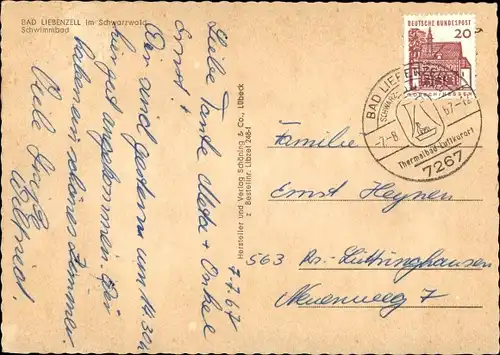 BAD LIEBENZELL im Schwarzwald
Schwimmbad
7.7.67
Liebe Tante Meta + Onkel
Ernst!
Wir sind gestern um 14.30h
hier gut angekommen. Wir
haben ein schönes Zimmer.
Viele Grüße
Wilfried.
Hersteller und Verlag Schöning & Co., Lübeck
z Bestellnr. Libzel 248-1
DEUTSCHE BUNDESPOST
20
BAD LIEBENZELL
SCHWARZ
-7.-8. 67-12
Thermalbad-Luftkurort
7267
Familie
Ernst Heynen
563 Rs.-Lüttringhausen
Neuenweg 7